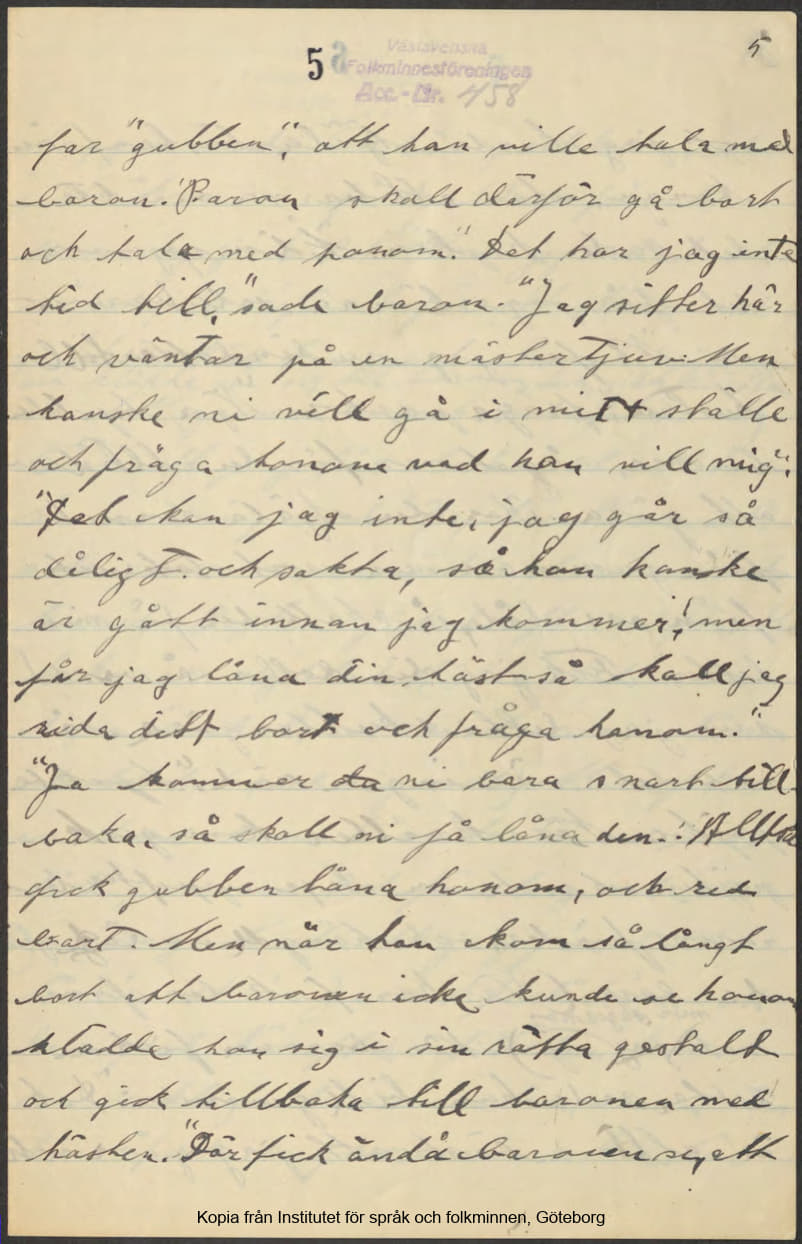 5
5
Västsvenska
Folkminnesföreningen
Acc.-Nr. 458
far "gubben", att han ville tala med
baron. "Baron skall därför gå bort
och tala med honom." "Det har jag inte
tid till," sade baron. "Jag sitter här
och väntar på en mästertjuv. Men
kanske ni vill gå i mitt ställe
och fråga honom vad han vill mig".
"Det kan jag inte, jag går så
dåligt och sakta, så han kanske
är gått innan jag kommer, men
får jag låna din häst så skall jag
rida ditt bort och fråga honom."
"Ja kommer da ni bara snart till-
baka, så skall ni få låna den." Alltså
fick gubben låna honom, och red
bort. Men när han kom så långt
bort att baronen icke kunde se honom
klädde han sig i sin rätta gestalt
och gick tillbaka till baronen med
hästen. "Där fick ändå baronen se, att
Kopia från Institutet för språk och folkminnen, Göteborg